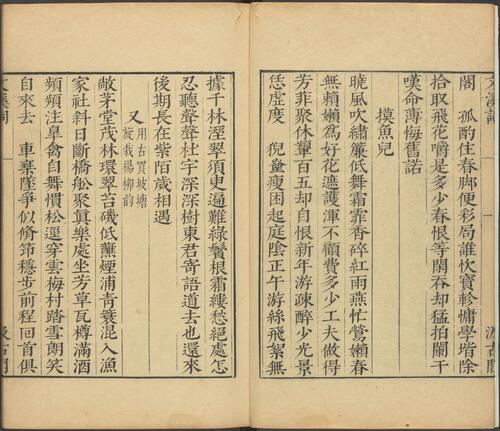 閣　孤酌住春脚便彩局誰忺寶軫慵學堦除
拾取飛花嚼是多少春恨等閑吞却猛拍闌干
嘆命薄悔舊諾
摸魚兒
曉風吹繡簾低舞霜霏香碎紅雨燕忙鶯嬾春
無賴嬾爲好花遮護渾不顧費多少工夫做得
芳菲聚休顰百五却自恨新年游疎醉少光景
恁虛度　倪鲎瘦困起庭陰正午游絲飛絮無
據千林溼翠須臾遍難綠鬢根霜縷愁絕處怎
忍聽聲聲杜宇深深樹東君寄語道去也還來
後期長在紫陌歲相遇
又用古買坡塘
旋栽楊柳韵
敞茅堂茂林環翠苔磯低蘸煙浦青蓑混入漁
家社斜日斷橋船聚眞樂處坐芳草瓦樽滿酒
頻頻注皐禽自舞慣松逕穿雲梅村踏雪朗笑
自來去　車棄墜爭似脩筇穩步前程回首俱